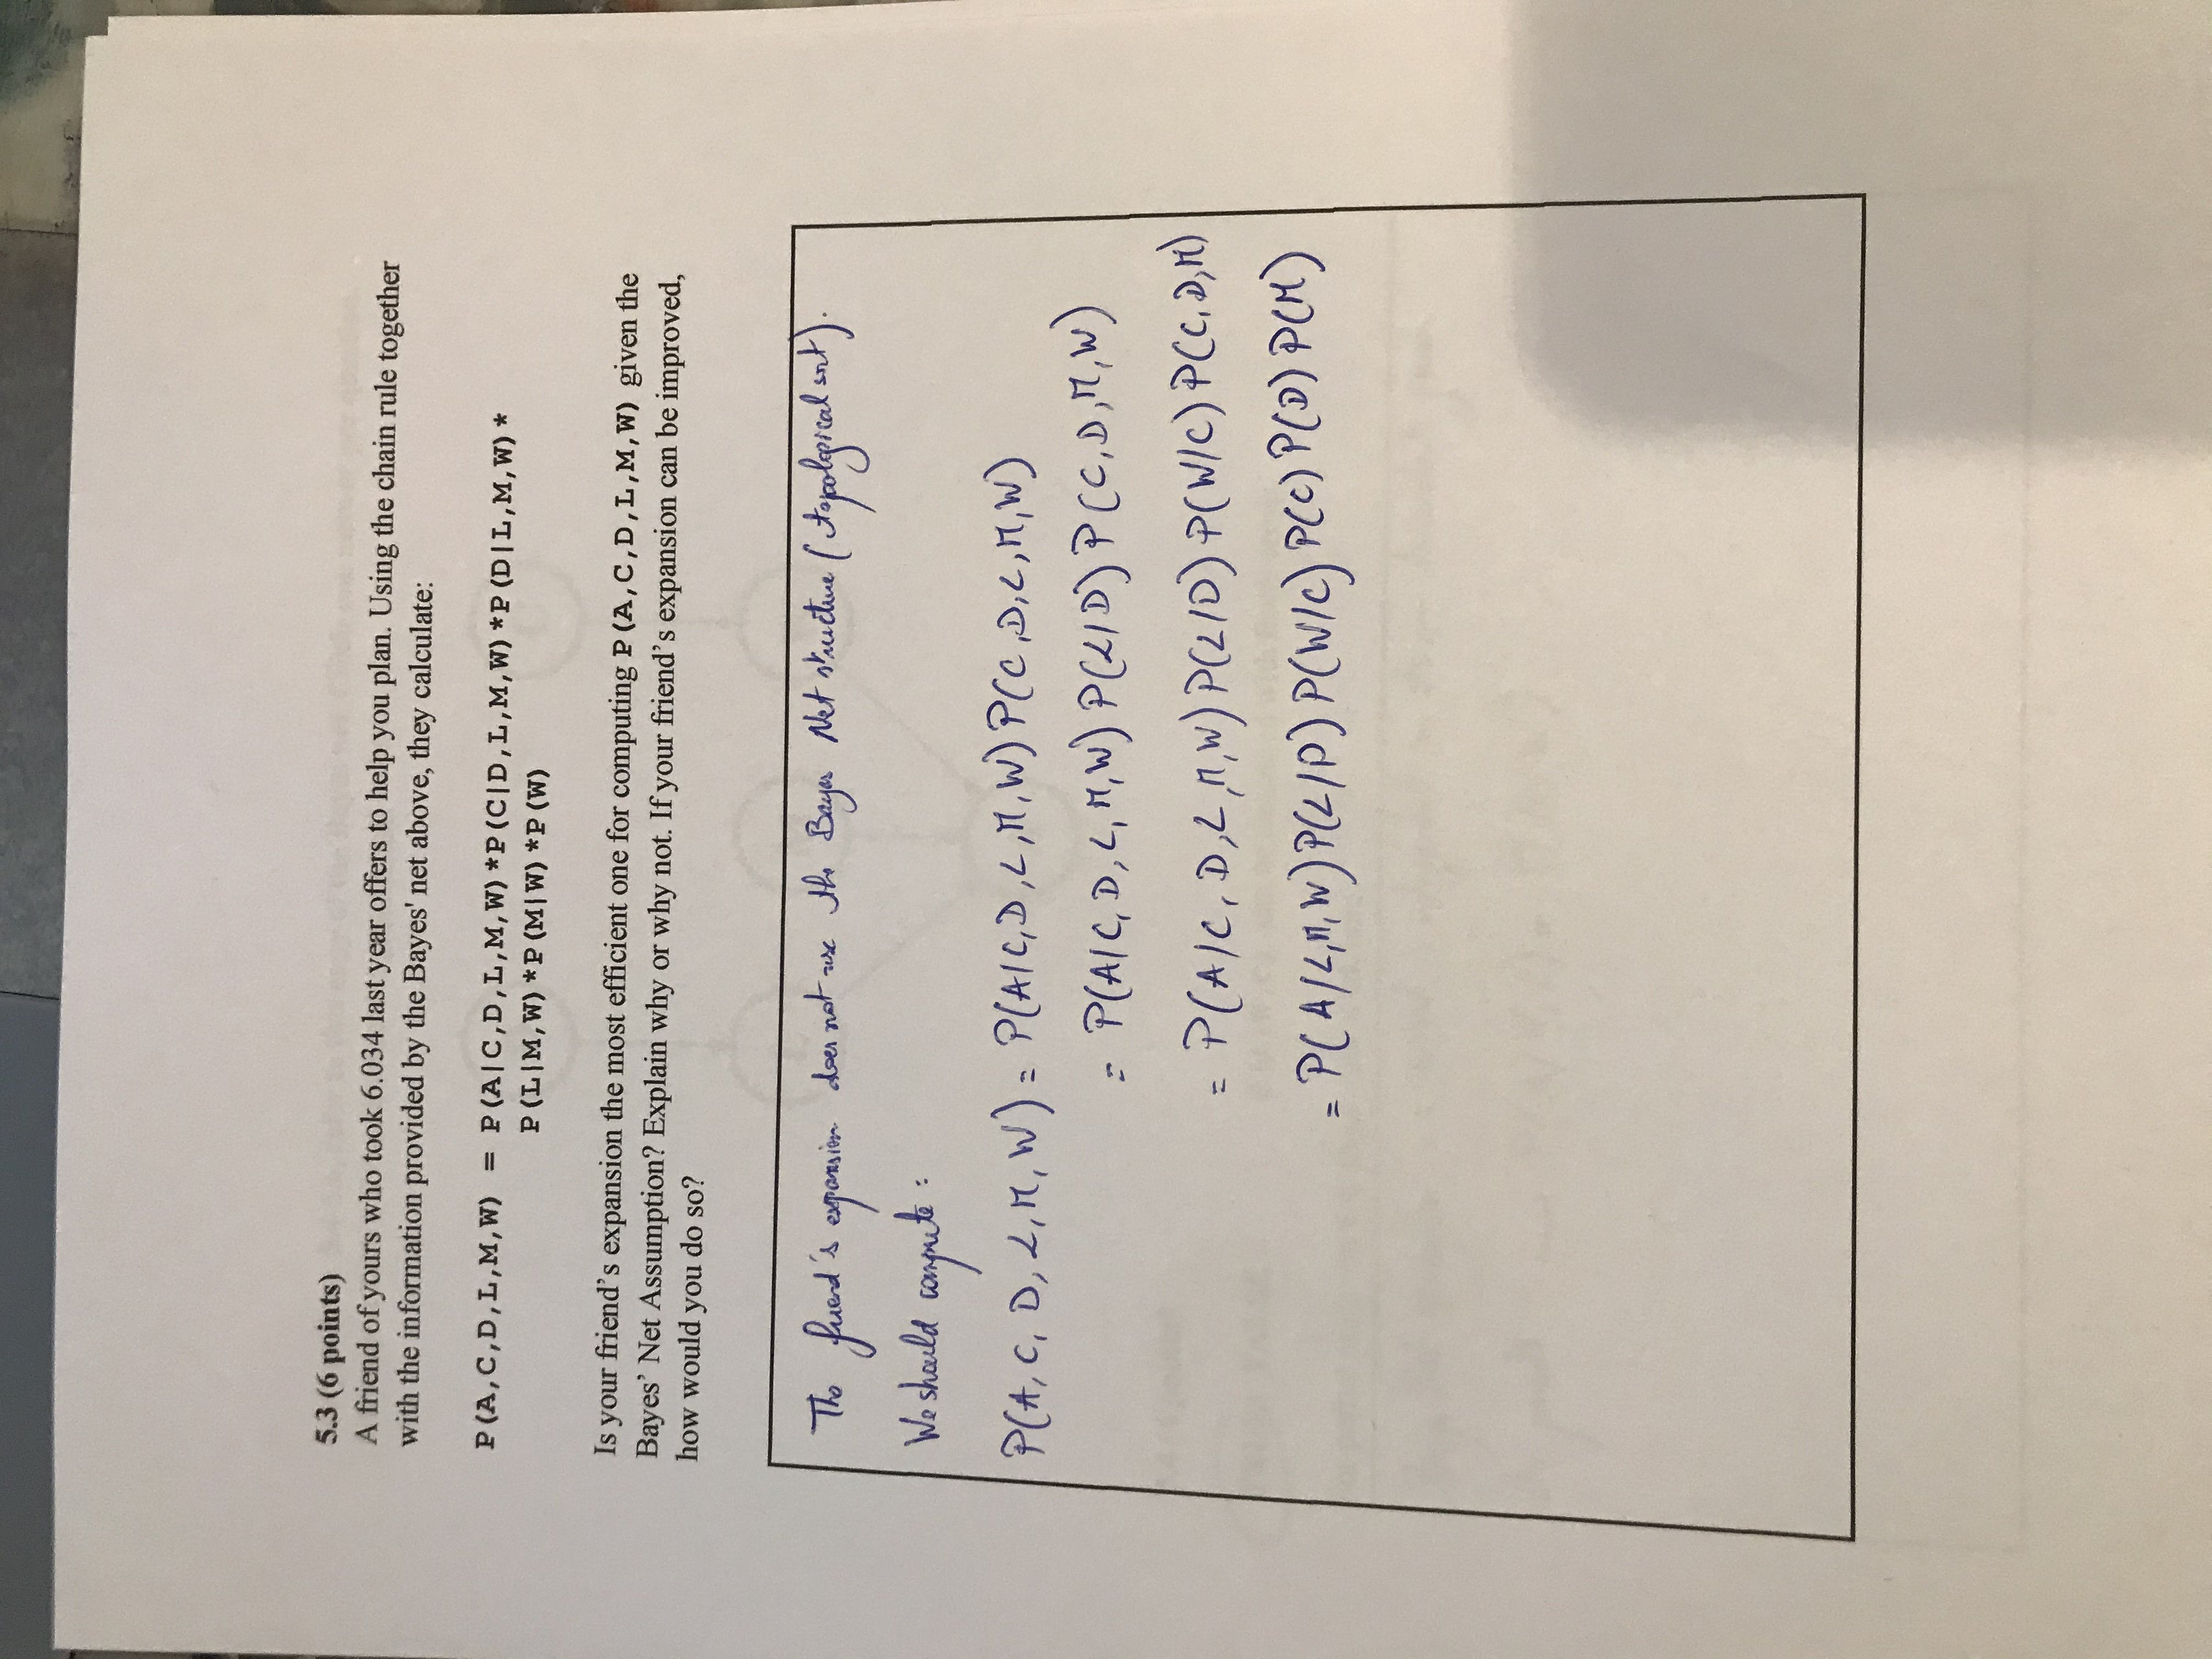 5.3 (6 points)
A friend of yours who took 6.034 last year offers to help you plan. Using the chain rule together
with the information provided by the Bayes' net above, they calculate:
P(A,C,D,L,M,W) = P(A|C,D,L,M,W)*P(C|D,L,M,W)*P(D|L,M,W)*
P(L|M,W)*P(M|W)*P(W)
Is your friend's expansion the most efficient one for computing P(A,C,D,L,M,W) given the
Bayes' Net Assumption? Explain why or why not. If your friend's expansion can be improved,
how would you do so?
The friend's expansion does not use the Bayes Net structure (topological sort).
We should compute :
P(A, C, D, L, M, W) = P(A|C,D,L,M,W) P(C,D,L,M,W)
= P(A|C, D, L, M, W) P(L|D) P(C,D,M,W)
= P(A|C, D, L, M, W) P(L|D) P(W|C) P(C,D,M)
= P(A|L,M,W) P(L|D) P(W|C) P(C) P(D) P(M)